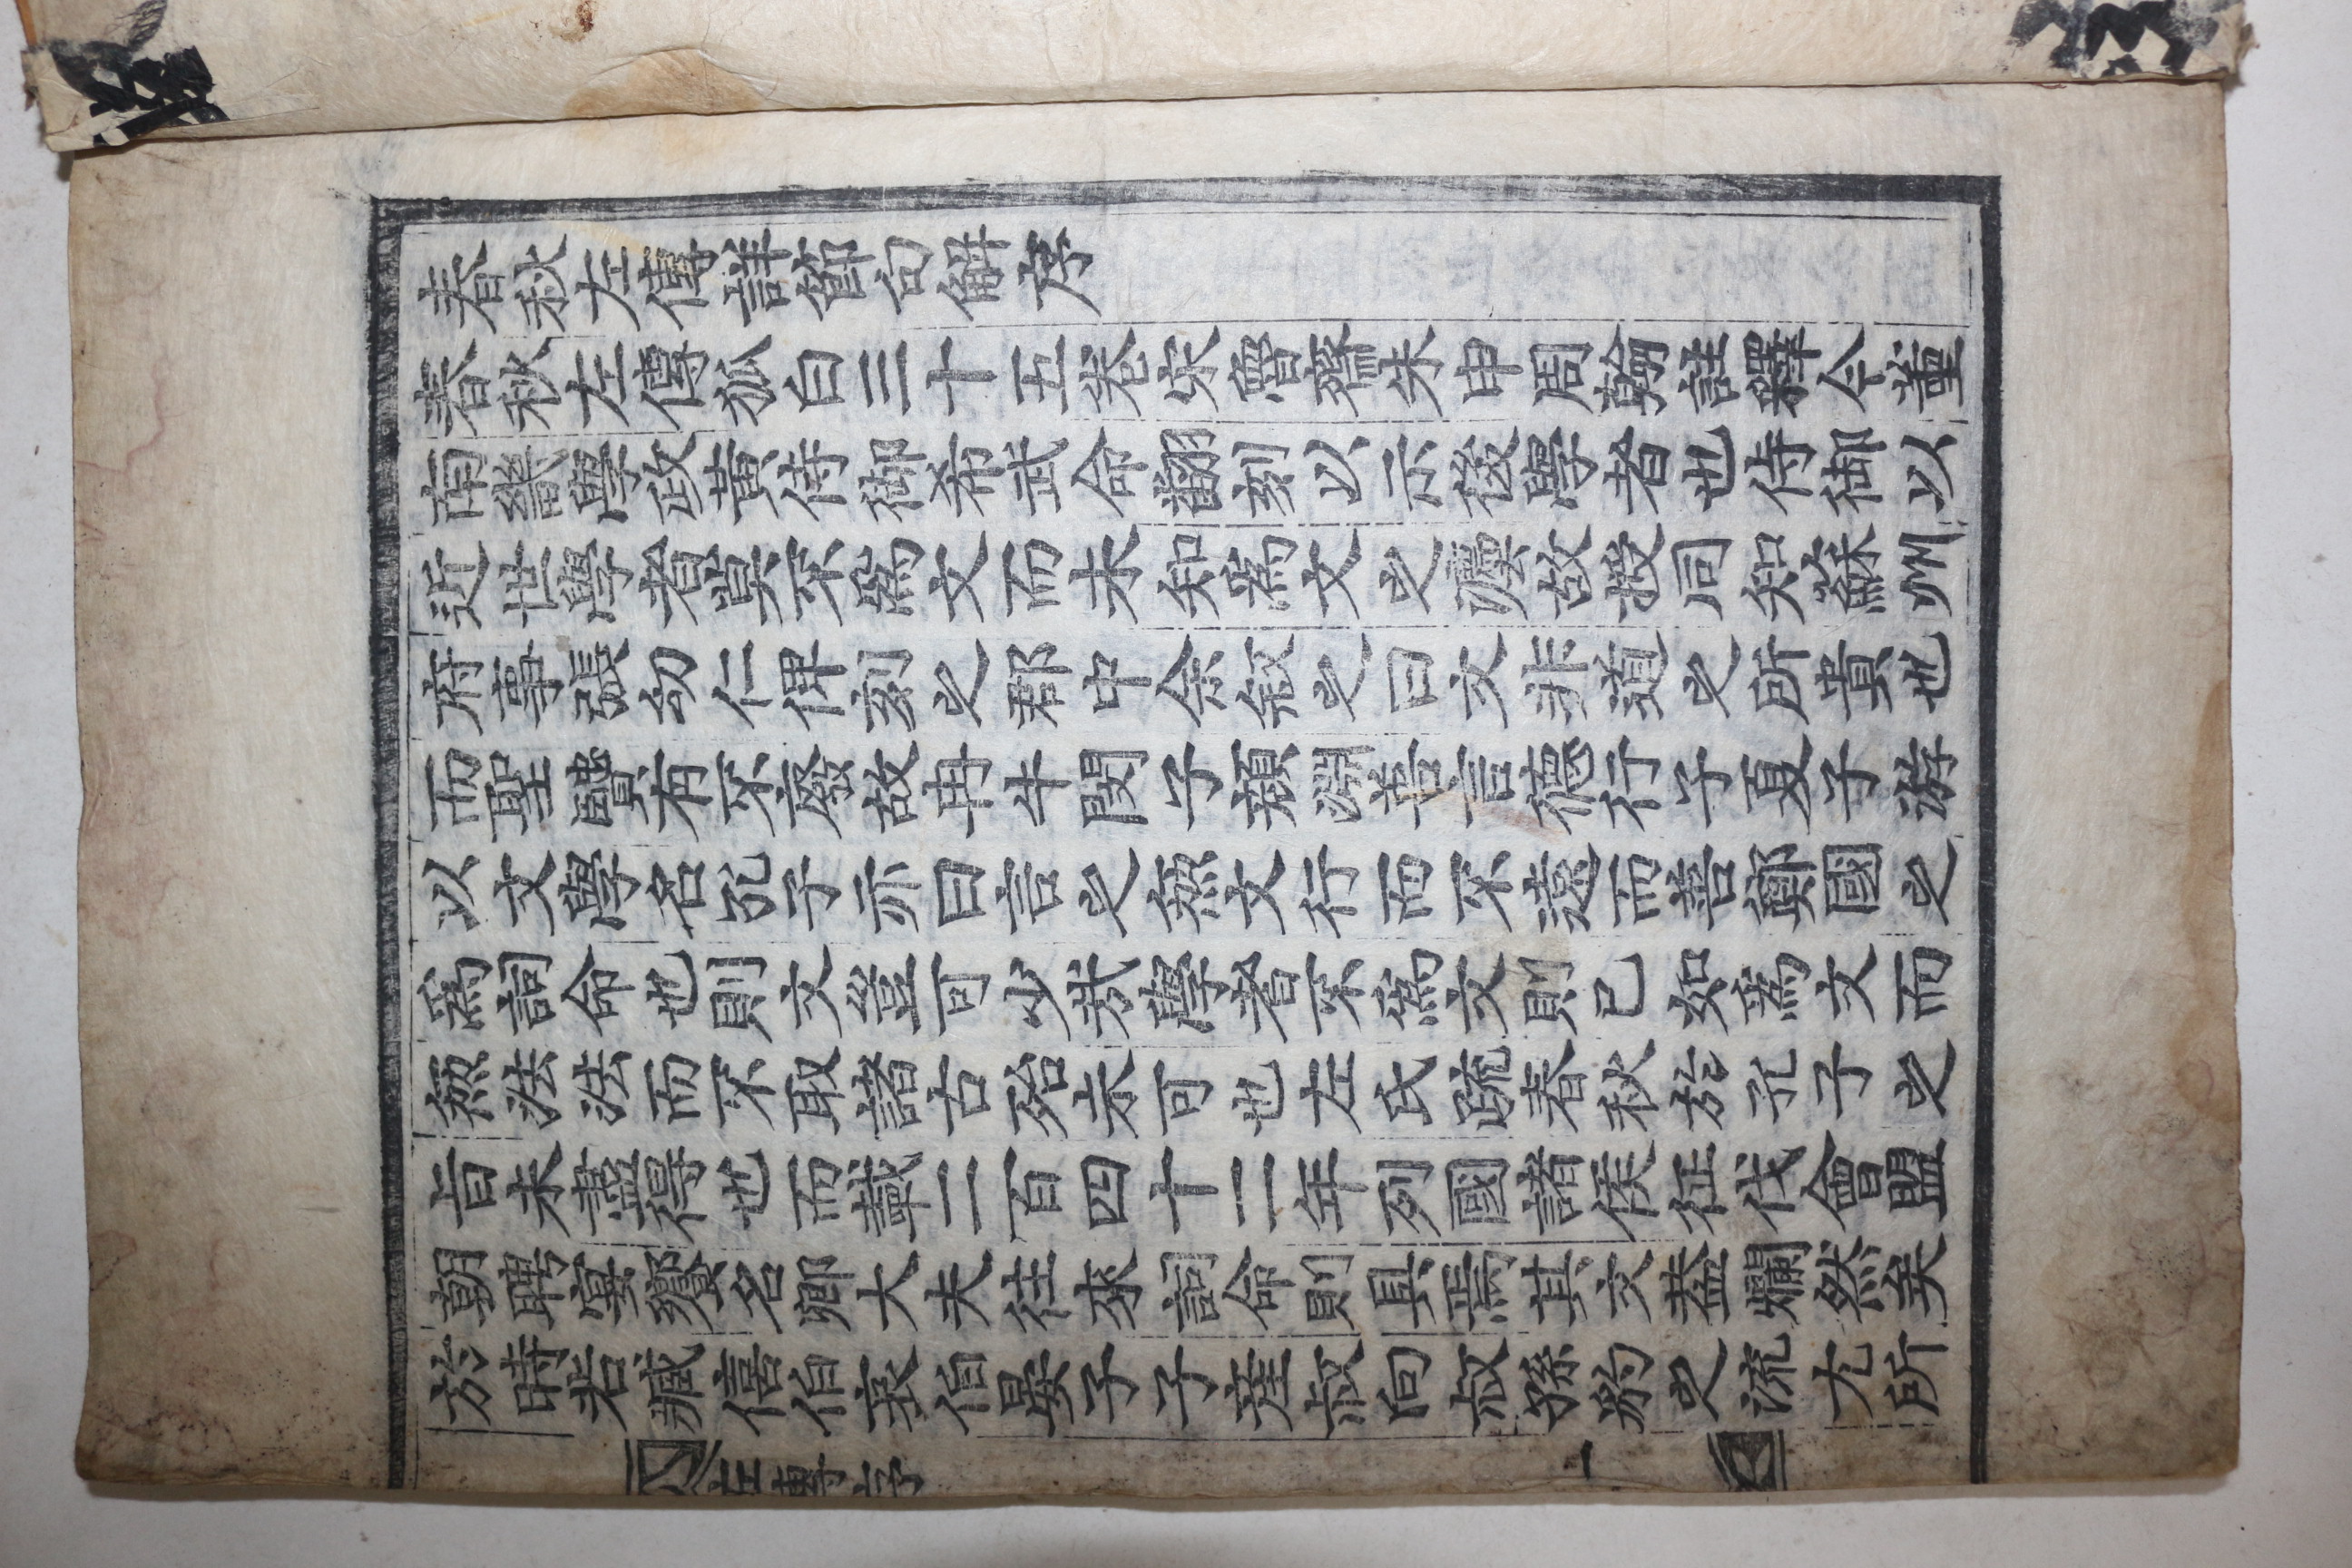 春秋左傳詳節句解序
春秋左傳凡百三十五卷宋魯齋朱申周翰註釋今董
南畿學政黃侍御希武命翻刻以示後學者也侍御以
近世學者莫不爲文而未知爲文之法故授同知蘇州
府事張幼仁俾刻之郡中余叙之曰文非道之所貴也
而聖賢有不廢故冉牛閔子顏淵善言德行子夏子游
以文學名孔子亦曰言之無文行而不遠而善鄭國之
爲詞命也則文豈可少哉學者不爲文則已如爲文而
無法法而不取諸古殆未可也左氏疏春秋於孔子之
旨未盡得也而載二百四十二年列國諸侯征伐會盟
朝聘宴饗名卿大夫往來詞命則具焉其文蓋爛然矣
於時若臧僖伯哀伯晏子子産叔向叔孫豹之流尤所
左傳序 一